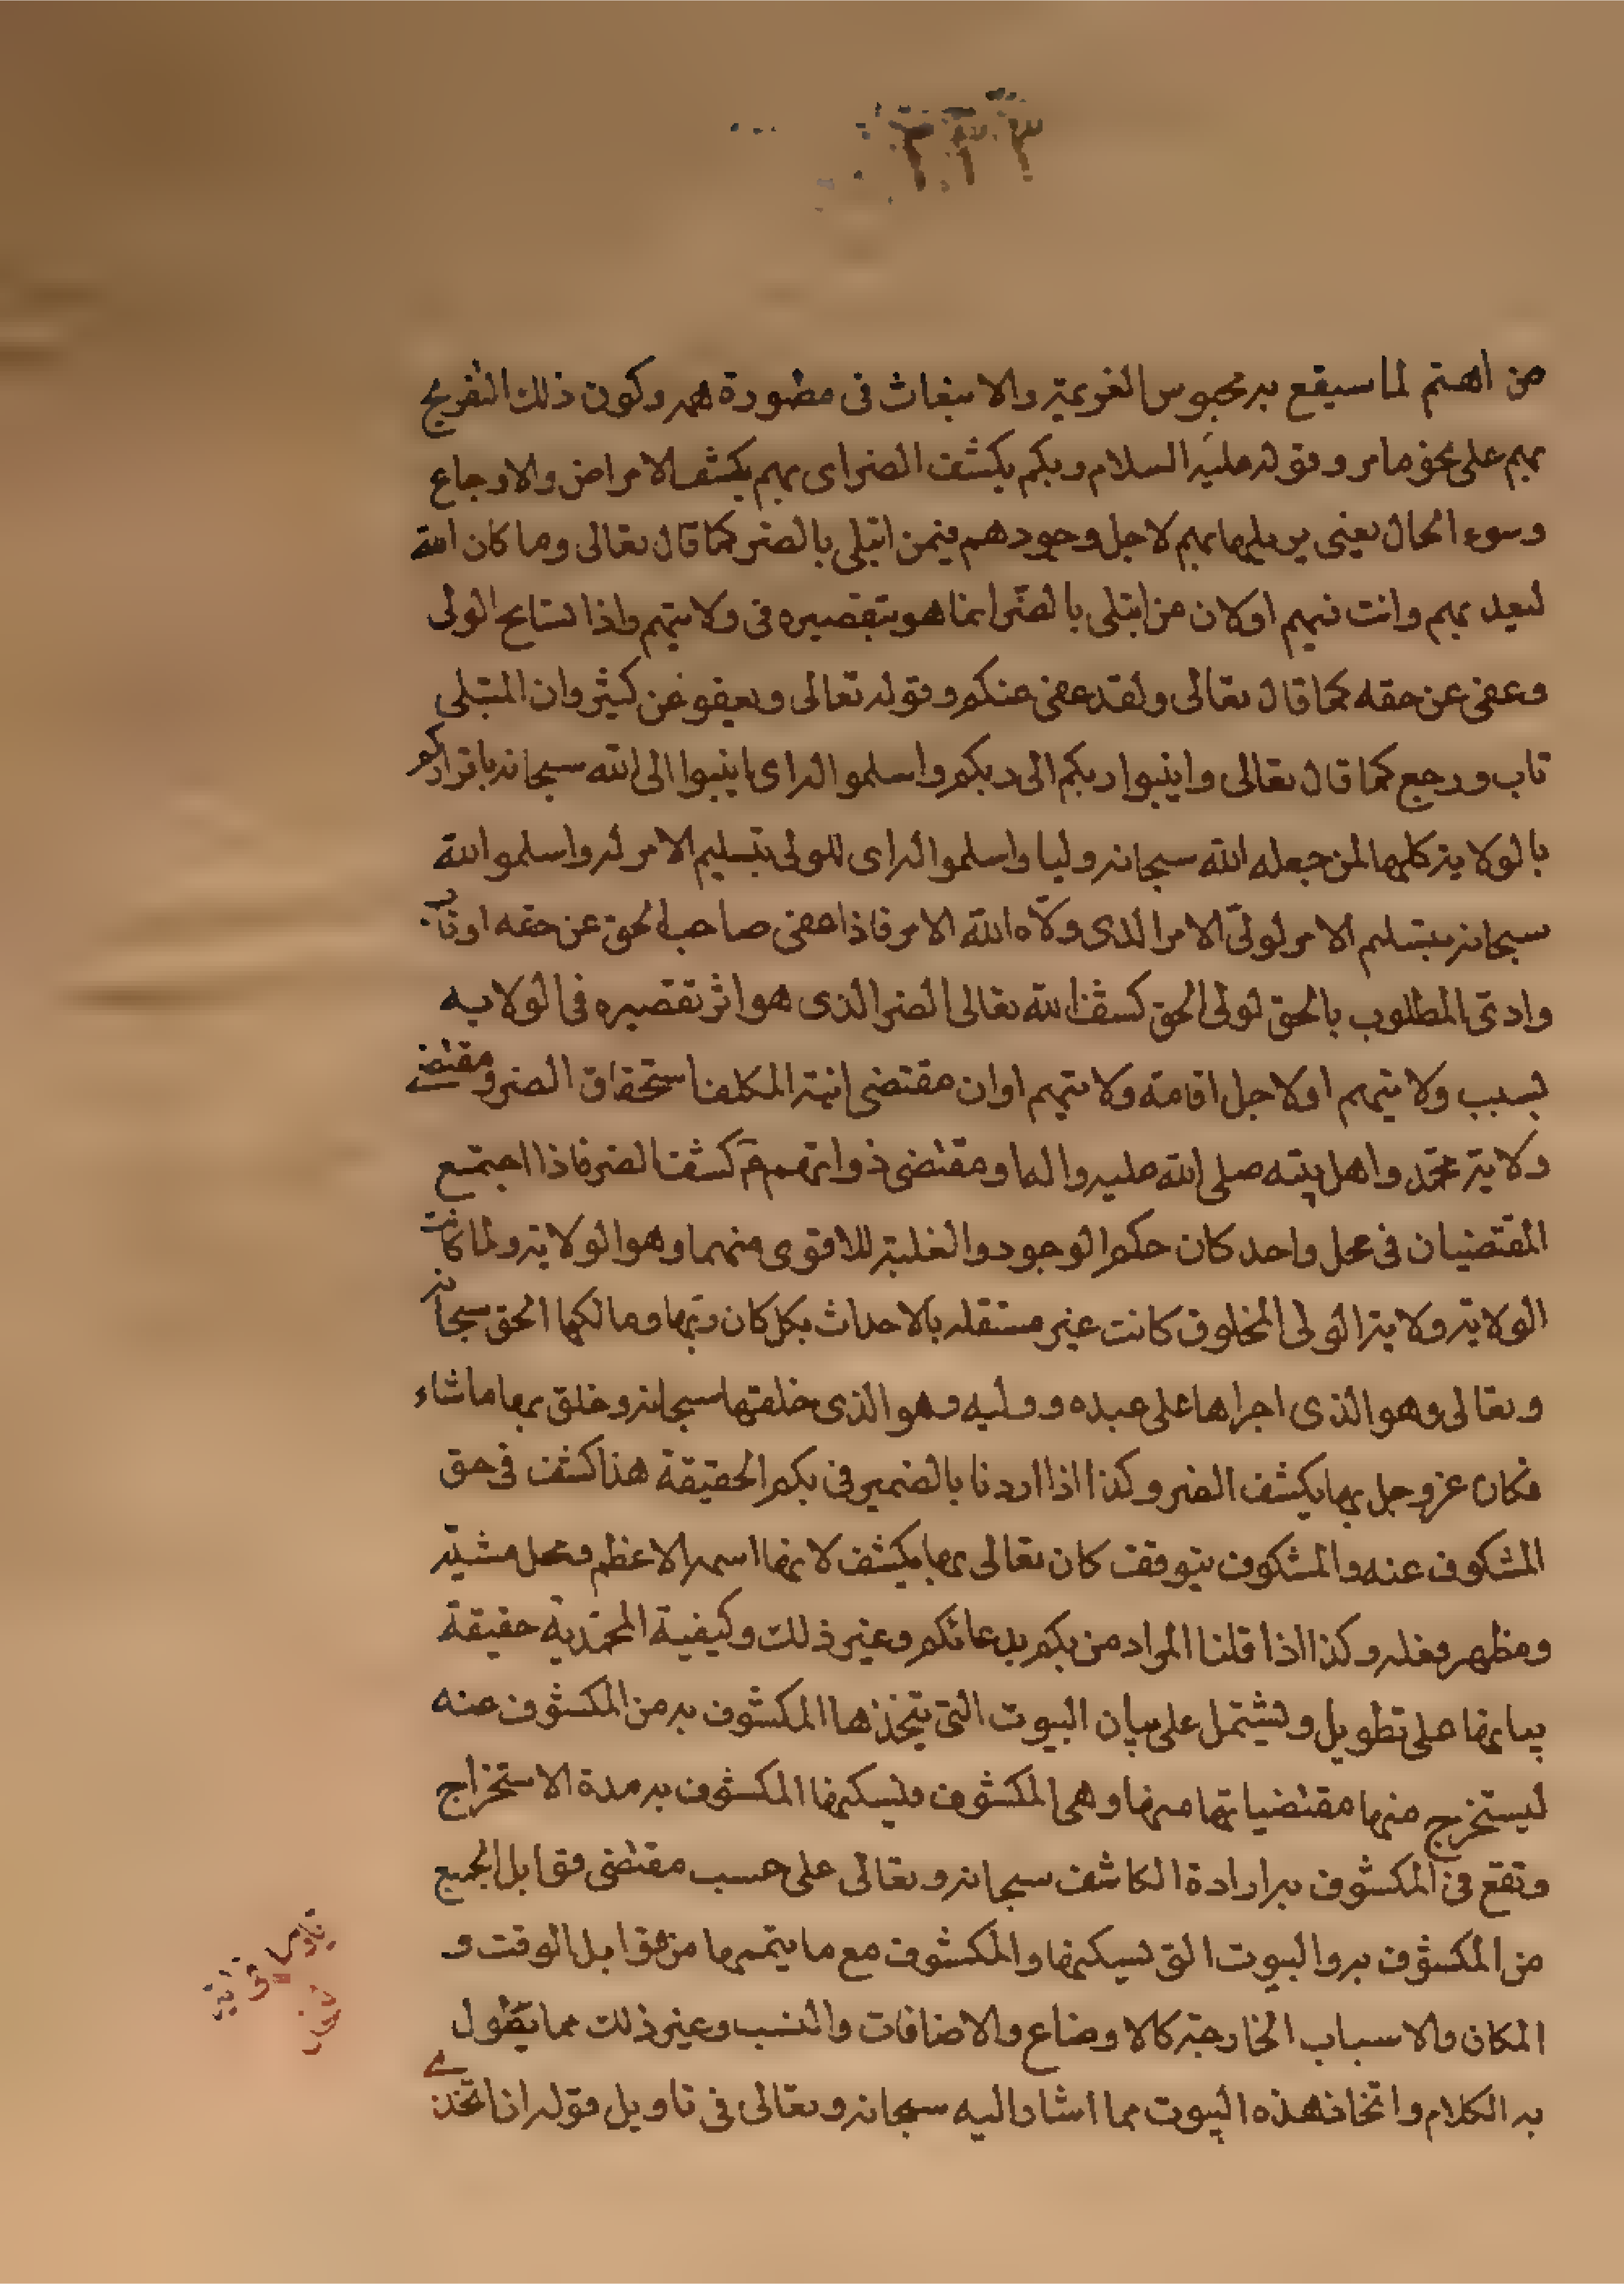 من اهتم لما سيقع به محبوس الغريمة والانبغاث فى مطمورة همه وكون ذلك التفريج
بهم على نحو ما مر وقوله عليه السلام وبكم يكشف الضر اى بهم يكشف الامراض والاوجاع
وسوء الحال يعنى يزيلها بهم لاجل وجودهم فيمن ابتلى بالضر كما قال تعالى وما كان الله
ليعذبهم وانت فيهم او لان من ابتلى بالضر انما هو بتقصيره فى ولايتهم واذا تسامح الولى
وعفى عن حقه كما قال تعالى ولقد عفى عنكم وقوله تعالى ويعفو عن كثير وان المبتلى
تاب ورجع كما قال تعالى وانيبوا ربكم الى ربكم واسلموا له اى انيبوا الى الله سبحانه باقراركم
بالولاية كلها لمن جعله الله سبحانه وليا واسلموا له اى للولى بتسليم الامر له واسلموا لله
سبحانه بتسليم الامر لولى الامر الذى ولاه الله الامر فاذا عفى صاحب الحق عن حقه او تاب
وادى المطلوب بالحق لولى الحق كشف الله تعالى الضر الذى هو اثر تقصيره فى الولايه
بسبب ولايتهم او لاجل اقامة ولايتهم او ان مقتضى انية المكلف استحقاق الضر ومقتضى
ولاية محمد واهل بيته صلى الله عليه وآله وا ومقتضى ذواتهم كشف الضر فاذا اجتمع
المقتضيان فى محل واحد كان حكم الوجود والغلبة للاقوى منهما وهو الولاية ولما كانت
الولاية ولاية الولى المخلوق كانت غير مستقله بالاحداث بكل كان ربها ومالكها الحق سبحانه
وتعالى وهو الذى اجراها على عبده ووليه وهو الذى خلقها سبحانه وخلق بها ما شاء
فكان عز وجل بها يكشف الضر وكذا اذا اردنا بالضمير فى بكم الحقيقة هذا كشف فى حق
المشكوف عنه والمشكوف بتوقف كان تعالى بها يكشف لانها اسمه الاعظم ومحل مشيته
ومظهر فعله وكذا اذا قلنا المراد من بكم بدعائكم وغير ذلك وكيفية المحمدية حقيقة
بيانها على تطويل وتشتمل على بيان البيوت التى يتخذها المكشوف به من المكشوف عنه
ليستخرج منها مقتضياتها منها وهى المكشوف وليسكنها المكشوف به مدة الاستخراج
وتقع فى المكشوف به ارادة الكاشف سبحانه وتعالى على حسب مقتضى قوابل الجميع
من المكشوف به والبيوت التى يسكنها والمكشوف مع ما يتممها من قوابل الوقت و
المكان والاسباب الخارجة كالاوضاع والاضافات والنسب وغير ذلك مما يطول
به الكلام واتخاذ هذه البيوت مما اشار اليه سبحانه وتعالى فى تاويل قوله ان اتخذى